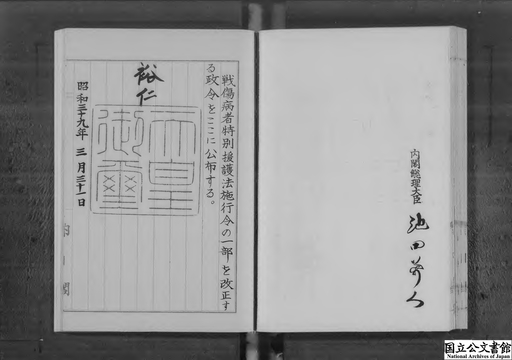 戦傷病者特別援護法施行令の一部を改正す
る政令をここに公布する。
裕仁
天皇
御璽
昭和三十九年三月三十一日
内閣
内閣総理大臣
池田勇人
国立公文書館
National Archives of Japan